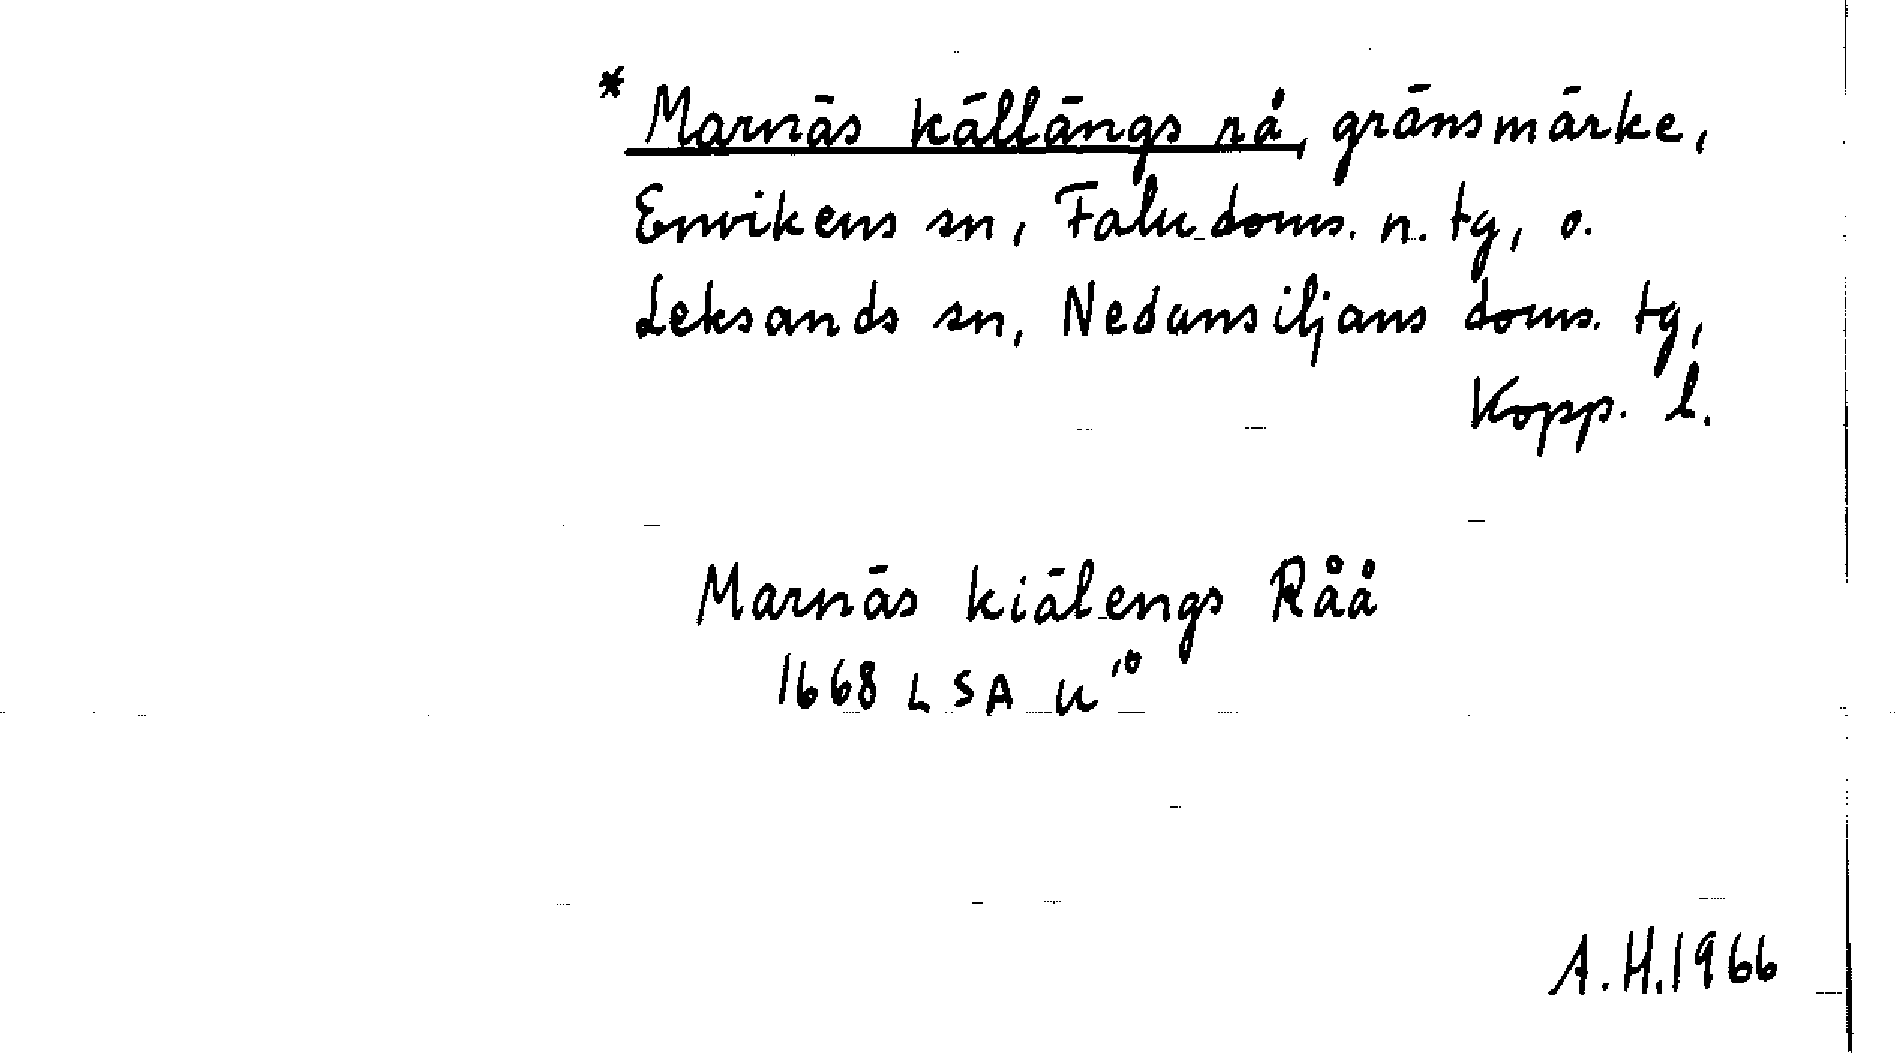 * Marnäs källängs rå, gränsmärke,
Envikens sn, Falu doms. n. tg, o.
Leksands sn, Nedansiljans doms. tg,
Kopp. l.
Marnäs kiälengs Råå
1668 LSA U 10
A.H.1966